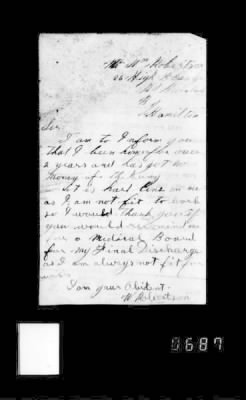 Mr Wm Robertson
26 High
Hamilton
Sir
I am to Inform you
that I been home for over
2 years and has got no
money of
it is hard line on me
as I am not fit to work
so I would thank you if
you would recommend
me a Medical Board
for my Final Discharge
as I am always not fit for
I am your Obident
W Robertson
0687